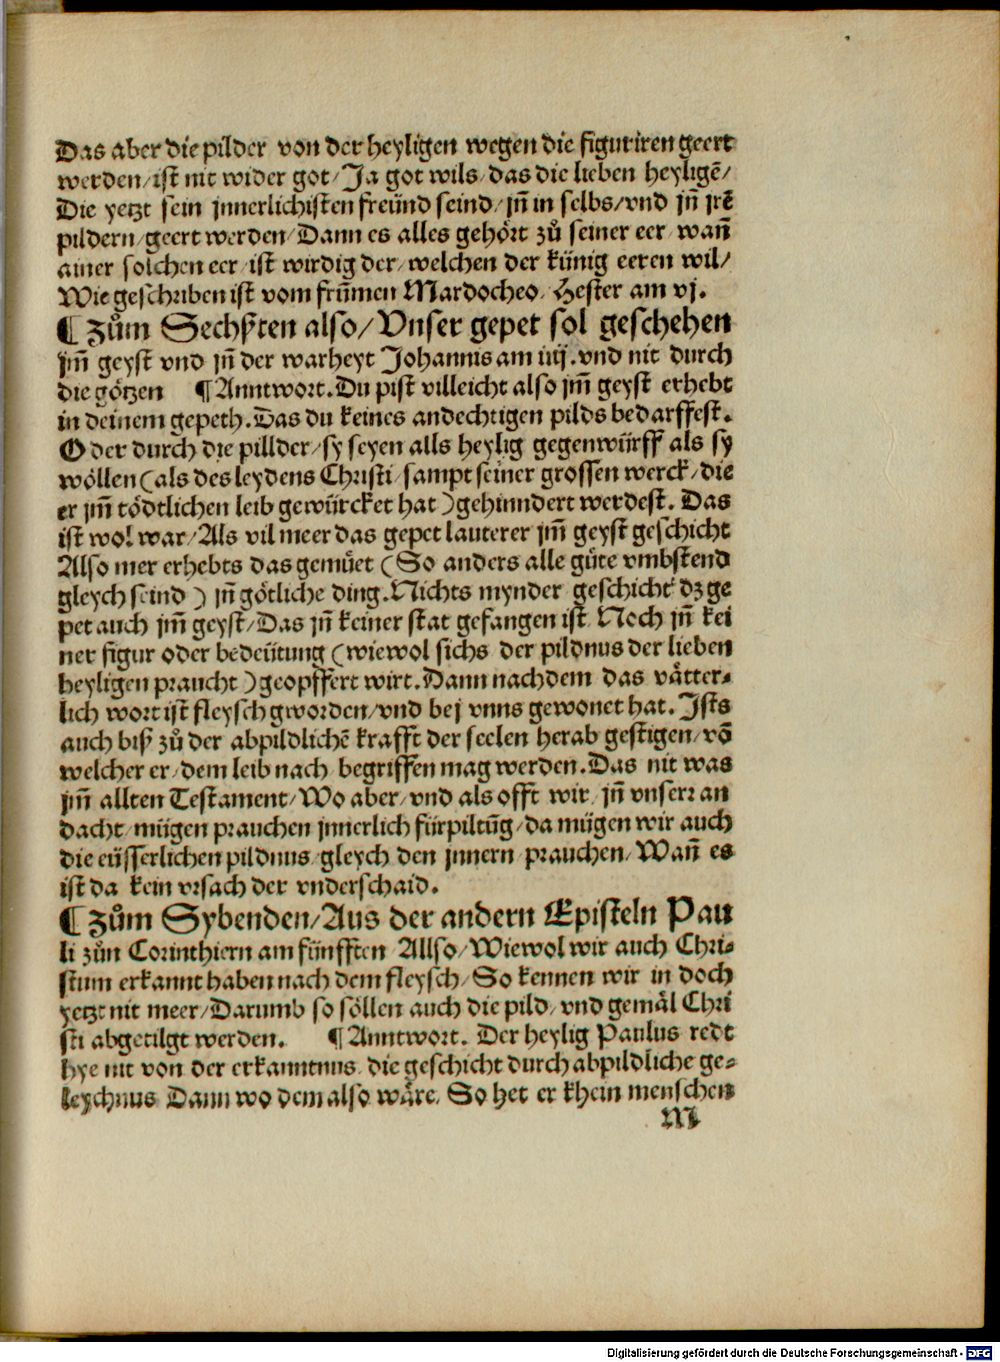 Das aber die pilder von der heyligen wegen die figuriren geert
werden/ist nit wider got/Ja got wils/das die lieben heyligē/
Die yetzt sein jnnerlichisten freünd seind/jn̄ in selbs/vnd jn̄ jrē
pildern/geert werden/Dann es alles gehört zů seiner eer/wan̄
ainer solchen eer/ist wirdig der/welchen der künig eeren wil/
Wie geschriben ist vom frūmen Mardocheo/Hester am vj.
¶ Zům Sechsten also/Vnser gepet sol geschehen
jm̄ geyst vnd jn̄ der warheyt Johannis am iiij.vnd nit durch
die götzen ¶ Anntwort.Du pist villeicht also jm̄ geyst erhebt
in deinem gepeth.Das du keines andechtigen pilds bedarffest.
Oder durch die pillder/sy seyen alls heylig gegenwürff als sy
wöllen (als des leydens Christi/sampt seiner grossen werck/die
er jm̄ tödtlichen leib gewürcket hat) gehinndert werdest. Das
ist wol war/Als vil meer das gepet lauterer jm̄ geyst geschicht
Also mer erhebts das gemüet (So anders alle güte vmbstend
gleych seind) jn̄ götliche ding.Nichts mynder geschicht dz ge
pet auch jm̄ geyst/Das jn̄ keiner stat gefangen ist Noch jn̄ kei
ner figur oder bedeütung (wiewol sichs der pildnus der lieben
heyligen praucht) geopffert wirt.Dann nachdem das vätter⸗
lich wort ist fleysch gworden/vnd bej vnns gewonet hat.Ists
auch biß zů der abpildlichē krafft der seelen herab gestigen/vō
welcher er/dem leib nach begriffen mag werden.Das nit was
jm̄ allten Testament/Wo aber/vnd als offt wir/jn̄ vnserr an
dacht/mügen prauchen jnnerlich fürpiltūg/da mügen wir auch
die eüsserlichen pildnus/gleych den jnnern prauchen/Wan̄ es
ist da kein vrsach der vnderschaid.
¶ Zům Sybenden/Aus der andern Episteln Pau
li zůn Corinthiern am fünfften Allso/Wiewol wir auch Chri⸗
stum erkannt haben nach dem fleysch/So kennen wir in doch
yetzt nit meer/Darumb so söllen auch die pild/vnd gemäl Chri
sti abgetilgt werden. ¶ Anntwort. Der heylig Paulus redt
hye nit von der erkanntnus/die geschicht durch abpildliche ge⸗
leychnus Dann wo dem also wäre/So het er khein menschen
M
Digitalisierung gefördert durch die Deutsche Forschungsgemeinschaft - DFG